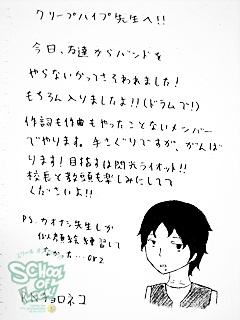 クリープハイプ先生へ!!
今日、友達からバンドを
やらないかってさそわれました!
もちろん入りましたよ!!(ドラムで!)
作詞も作曲もやったことないメンバー
でやります。手さぐりですが、がんば
ります!目指すは閃光ライオット!!
校長と教頭も楽しみにしてて
くださいよ!!
P.S. カオナシ先生しか
似顔絵練習して
なかった…orz
SCHOOL OF LOCK!
RN チョロネコ